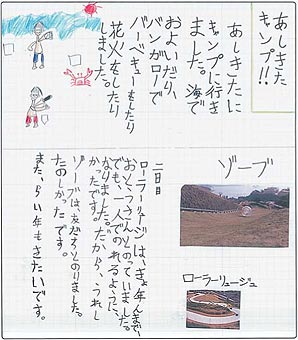 あしきた
キャンプ!!
あしきたに
キャンプに行き
ました。海で
およいだり、
バンガローで
バーベキューをしたり
花火をしたり
しました。
二日目
ローラーリュージュは、きょ年まで、
おとうさんとのっていました。
でも、一人でのれるように、
なりました。だから、うれし
かったです。
ゾーブは、友だちとのりました。
たのしかったです。
また、らい年もきたいです。
ゾーブ
ローラーリュージュ